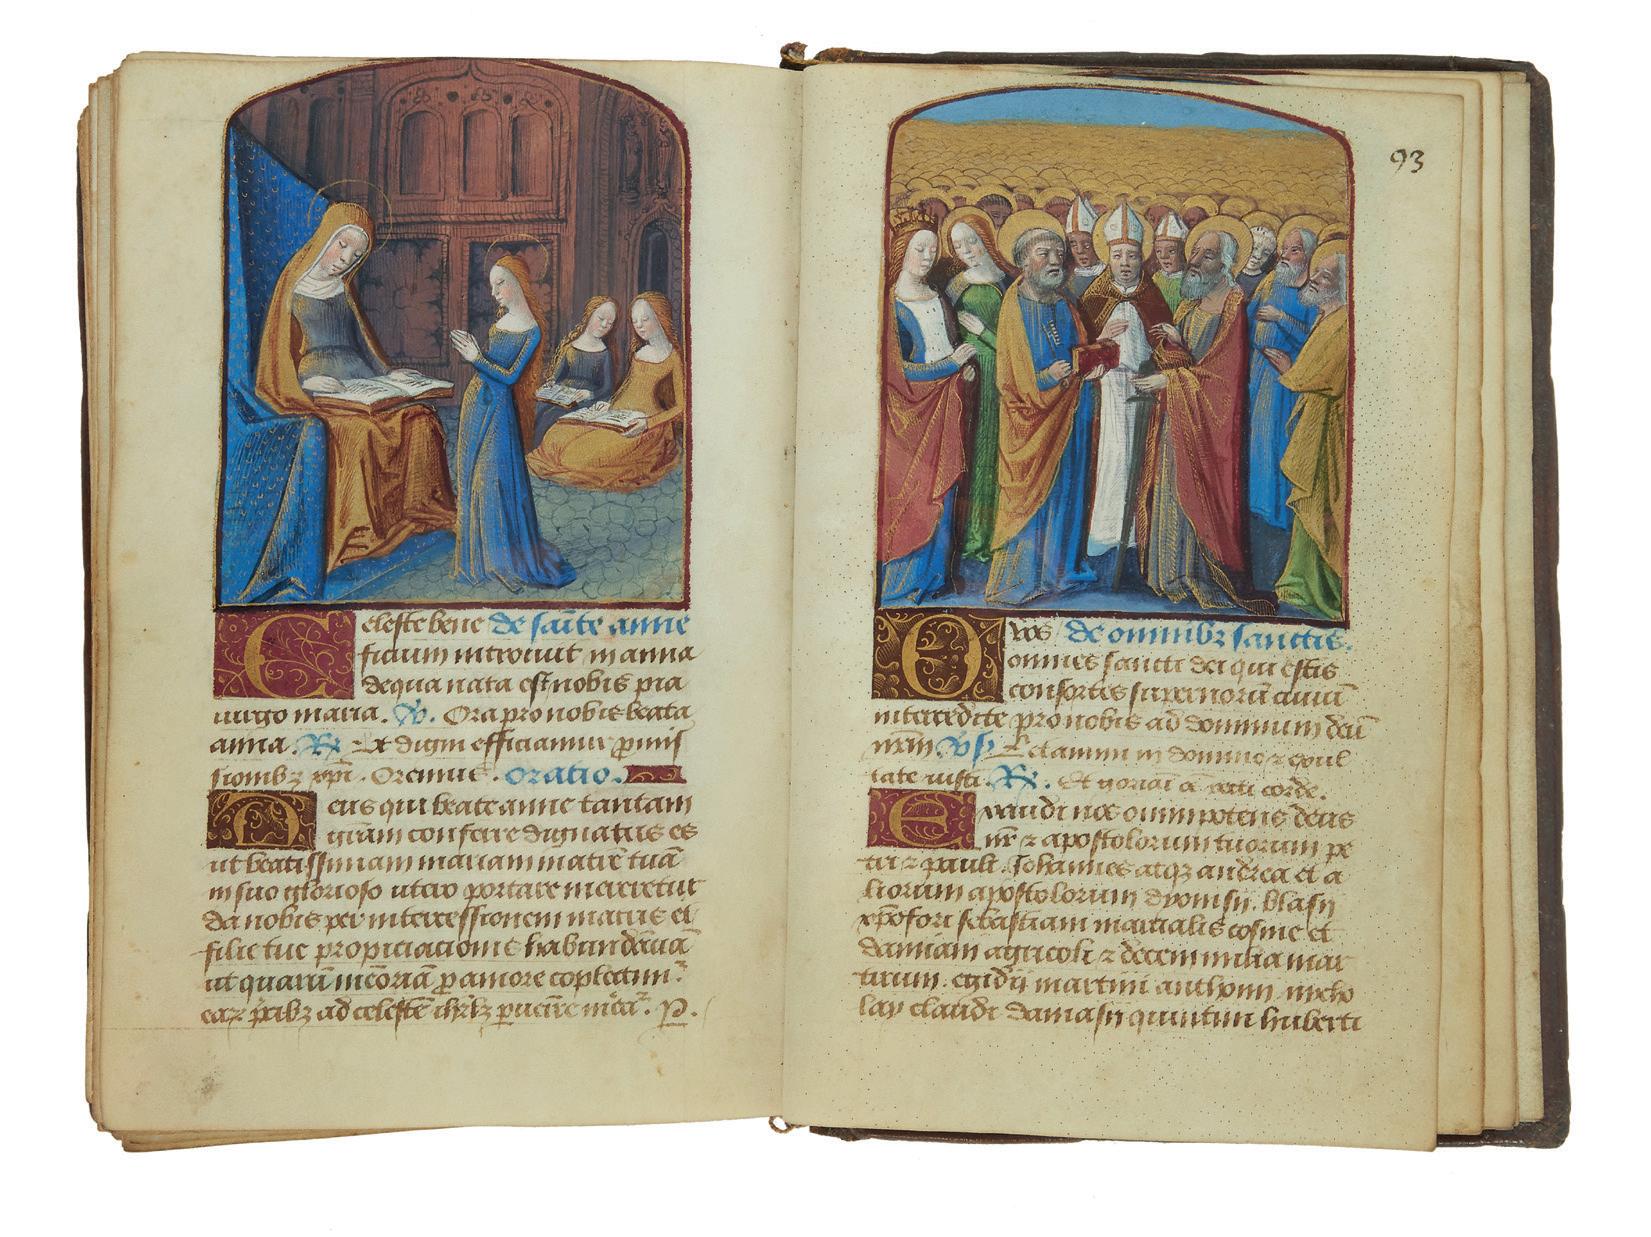 Celeste bene de sãcte anne
ficium introiuit in anna
de qua nata est nobis pia
uirgo maria. V. Ora pro nobis beata
anna. R Ut digni efficiamur pmis
sionibz xpi. Oremus. oratio.
Deus qui beate anne tantam
grãm conferre dignatus es
ut beatissimam mariam matrẽ tuã
in suo glorioso utero portare mereretur
da nobis per intercessionem matris et
filie tue propiciacionis habundãciã
ut quarũ mẽoriã p amore coplectim
ear pcibz ad celestẽ ihrlz puenire meã. P.
93
O vos de omnibz sanctis.
omnes sancti dei qui estis
consortes supernorũ ciuiũ
intercedite pro nobis ad dominum deũ
nrm Vs Letamini in domino z exul
tate iusti. R. Et gloriã õ recti corde.
Exaudi nos omnipotens deus
nr z apostolorum tuorum pe
tri z pauli Johannes atqz andrea et a
liorum apostolorum dyonisii. blasii
xpofori sebastiani marcialis cosme et
damiani agricoli z decem milia mar
tirum. egidii martini anthonii nycho
lay claudi damasii quintini huberti